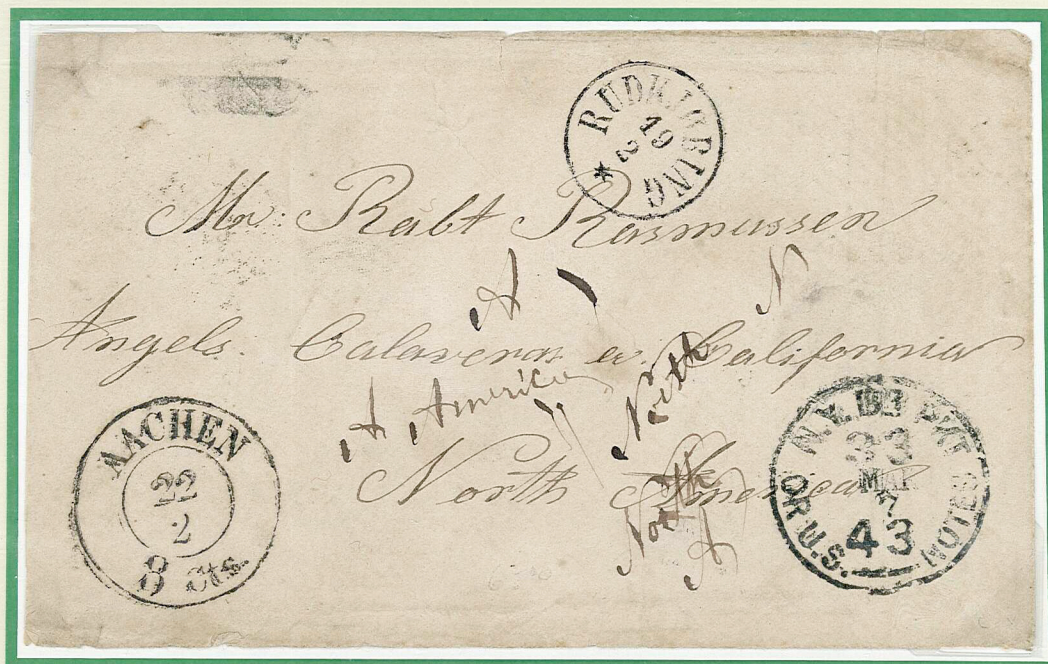 RUDKJØBING
19
2
Mr: Rabt Rasmussen
A N
Angels. Calaveras co. California
A America North
North America
North
A
AACHEN
22
2
8 cts.
N.Y. BR PKT
33
MAR
7
43
OR U.S. NOTES